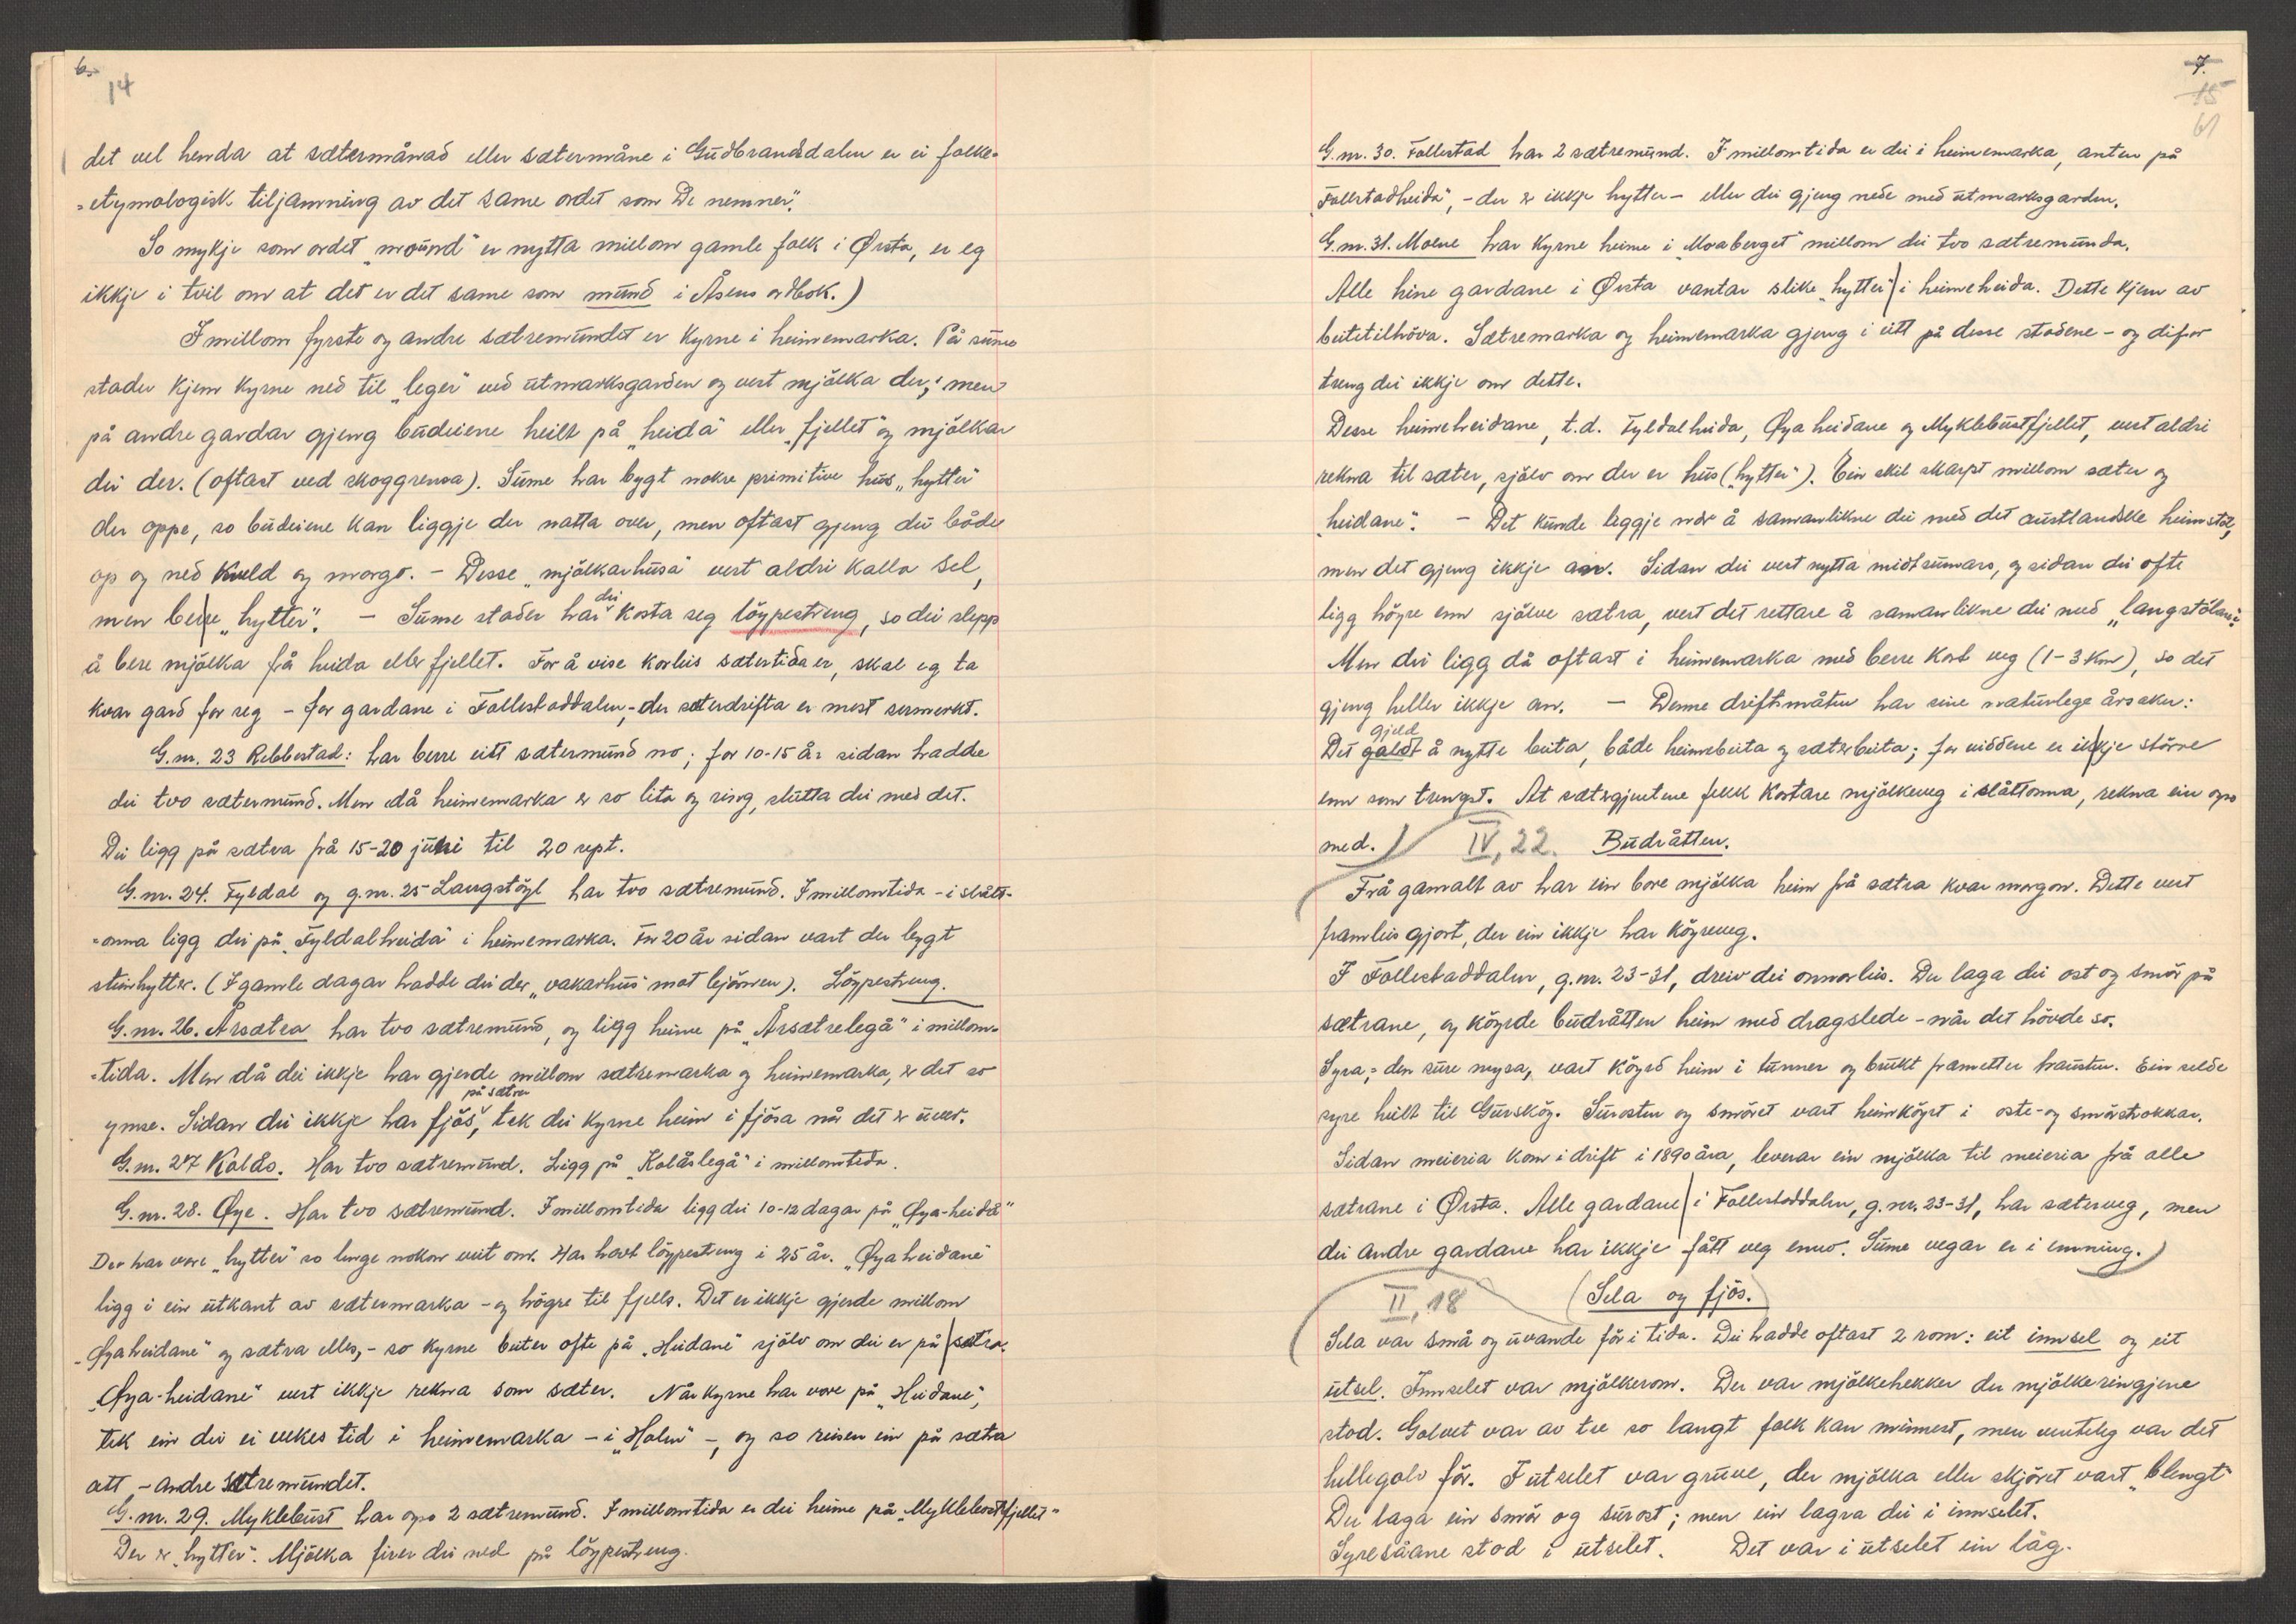 6.
14
det vel henda at sætermånad eller sætermåne i Gudbrandsdalen er ei folke-
-etymologisk tiljamning av det same ordet som De nemner".
So mykje som ordet "mound" er nytta millom gamle folk i Ørsta, er eg
ikkje i tvil om at det er det same som mund i Åsens ordbok.)
I millom fyrste og andre sætremundet er kyrne i heimemarka. På sume
stader kjem kyrne ned til "leger" ved utmarksgarden og vert mjólka der; men
på andre gardar gjeng budeiene heilt på "heida" eller "fjellet" og mjólkar
dei der. (oftast ved skoggrensa). Sume har bygt nokre primitive hus "hytter"
der oppe, so budeiene kan liggje der natta over, men oftast gjeng dei både
op og ned kveld og morgo. - Desse "mjólkarhusa" vert aldri kalla sel,
men berre "hytter". - Sume stader har dei kosta seg löypestreng, so dei slepp
å bere mjólka frå heida eller fjellet. For å vise korleis sætertida er, skal eg ta
kvar gard for seg - for gardane i Follestaddalen, - der sæterdrifta er mest sermerkt.
G. nr. 23 Rebbestad: har berre eitt sætermund no; for 10-15 år sidan hadde
dei tvo sætermund. Men då heimemarka er so lita og ring, slutta dei med det.
Dei ligg på sætra frå 15-20 juni til 20 sept.
G. nr. 24. Fyldal og g.nr. 25 Langstöyl har tvo sætremund. I millomtida - i slått-
-onna ligg dei på "Fyldalheida" i heimemarka. For 20 år sidan vart der bygt
steinhytter. (I gamle dagar hadde dei der "vakarhus" mot björnen). Löypestreng.
G. nr. 26. Årsætra har tvo sætremund, og ligg heime på "Årsætrelega" i millom-
-tida. Men då dei ikkje har gjerde millom sætremarka og heimemarka, er det so
ymse. Sidan dei ikkje har fjós på sætra, tek dei kyrne heim i fjósa når det er uver.
G. nr. 27 Kolås. Har tvo sætremund. Ligg på "Kolåslegå" i millomtida.
G. nr. 28. Øye. Har tvo sætremund. I millomtida ligg dei 10-12 dagar på "Øya-heida"
Der har vore "hytter" so lenge nokon veit om. Har havt löypestreng i 25 år. "Øyaheidane"
ligg i ein utkant av sætermarka - og högre til fjells. Det er ikkje gjerde millom
"Øyaheidane" og sætra elles, - so kyrne beiter ofte på "Heidane" sjölv om dei er på sætra.
"Øya-heidane" vert ikkje rekna som sæter. Når kyrne har vore på "Heidane",
tek ein dei ei vekes tid i heimemarka - i "Holen" -, og so reisen ein på sætra
att - andre sætremundet.
G. nr. 29. Myklebust har ogso 2 sætremund. I millomtida er dei heime på "Myklebustfjellet"
Der er "hytter". Mjólka firer dei ned på löypestreng.
7.
15
61
G. nr. 30. Follestad har 2 sætremund. I millomtida er dei i heimemarka, anten på
"Follestadheida", - der er ikkje hytter - eller dei gjeng nede med utmarksgarden.
G. nr. 31. Moene har kyrne heime i "Moaberget" millom dei tvo sætremunda.
Alle hine gardane i Ørsta vantar slike "hytter" i heimeheida. Dette kjem av
beitetilhöva. Sætremarka og heimemarka gjeng i eitt på desse stadene - og difor
treng dei ikkje om dette.
Desse heimeheidane, t.d. Fyldalheida, Øyaheidane og Myklebustfjellet, vert aldri
rekna til sæter, sjölv om der er hus ("hytter"). Ein skil skarpt millom sæter og
"heidane". - Det kunde liggje nær å samanlikne dei med det austlandske heimstöl,
men det gjeng ikkje an. Sidan dei vert nytta midtsumars, og sidan dei ofte
ligg högre enn sjölve sætra, vert det rettare å samanlikne dei med "langstölane".
Men dei ligg då oftast i heimemarka med berre kort veg (1-3 km), so det
gjeng heller ikkje an. - Denne driftsmåten har sine naturlege årsaker:
Det galdt gjeld å nytte beita, både heimebeita og sæterbeita; for viddene er ikkje större
enn som trengst. At sætregjentene fekk kortare mjólkeveg i slåttonna, rekna ein ogso
med.) IV, 22. Budråtten.
Frå gamalt av har ein bore mjólka heim frå sætra kvar morgon. Dette vert
framleis gjort, der ein ikkje har köyreveg.
I Follestaddalen, g.nr. 23-31, dreiv dei onnorleis. Der laga dei ost og smör på
sætrane, og köyrde budråtten heim med dragslede - når det hövde so.
Syra, = den sure mysa, vart köyrd heim i tunner og brukt frametter hausten. Ein selde
syre heilt til Gurskøy. Surosten og smöret vart heimköyrt i oste- og smörstrokkar.
Sidan meieria kom i drift i 1890 åra, leverar ein mjólka til meieria frå alle
sætrane i Ørsta. Alle gardane i Follestaddalen, g.nr. 23-31, har sæterveg, men
dei andre gardane har ikkje fått veg enno. Sume vegar er i emning.)
II, 18 (Sela og fjós.)
Sela var små og uvande för i tida. Dei hadde oftast 2 rom: eit innsel og eit
utsel. Innselet var mjólkerom. Der var mjólkehekker der mjólkeringjene
stod. Golvet var av tre so langt folk kan minnest, men venteleg var det
hellegolv för. I utselet var gruve, der mjólka eller skjöret vart "blengt"
Der laga ein smör og surost; men ein lagra dei i innselet.
Syresåane stod i utselet. Det var i utselet ein låg.